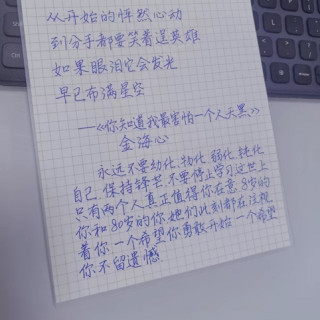 从开始的怦然心动
到分手都要笑着送英雄
如果眼泪它会发光
早已布满星空
——《你知道我最害怕一个人天黑》
金海心
永远不要幼化、矮化、弱化、钝化
自己,保持锋芒,不要停止学习这世上
只有两个人真正值得你在意,8岁的
你和80岁的你,她们此刻都在注视
着你,一个希望你勇敢开始一个希望
你不留遗憾